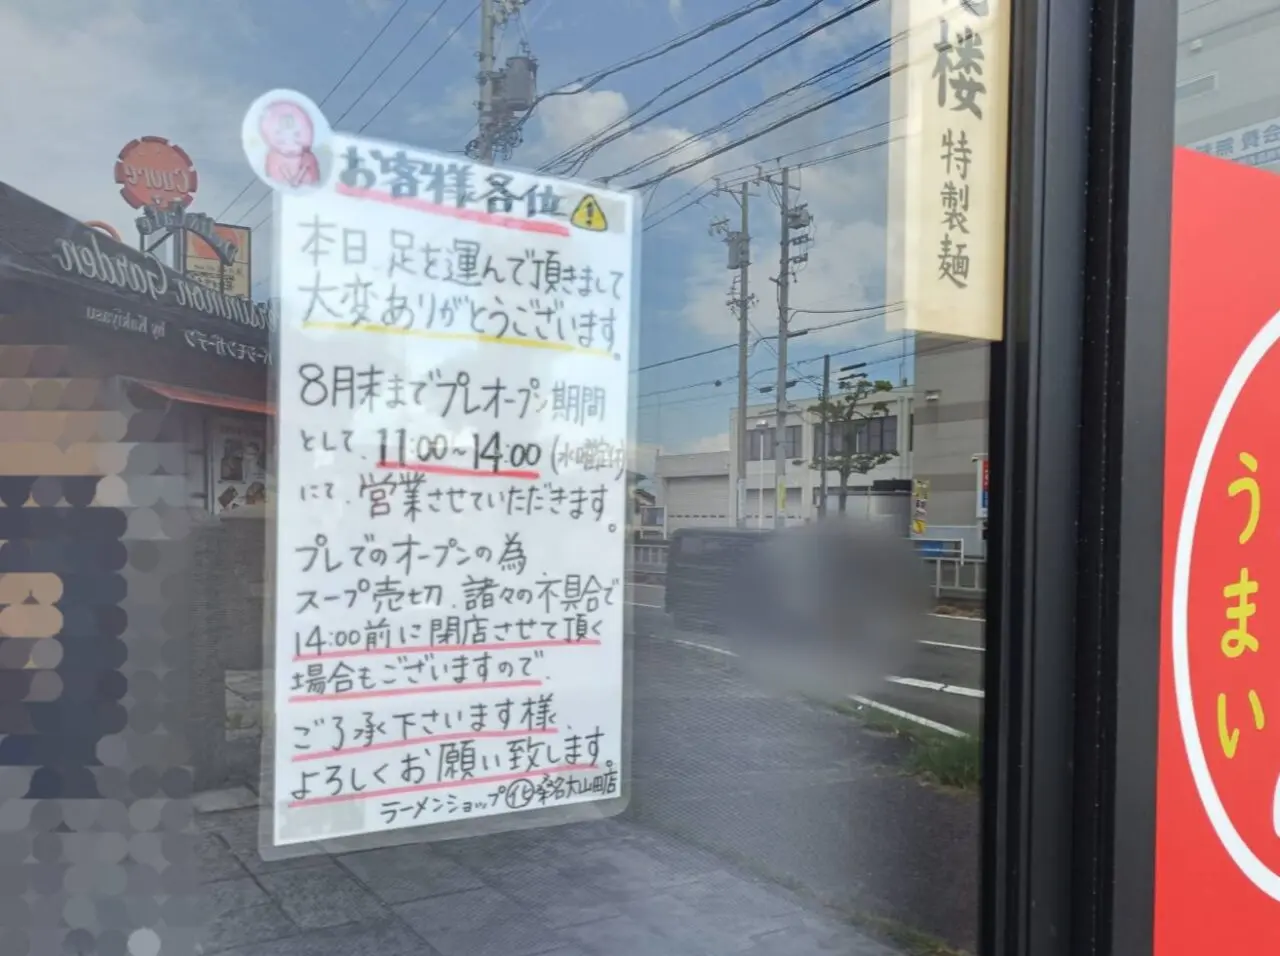 お客様各位
本日、足を運んで頂きまして
大変ありがとうございます。
8月末までプレオープン期間
として、11:00~14:00(水曜定休)
にて、営業させていただきます。
プレでのオープンの為
スープ売切、諸々の不具合で
14:00前に閉店させて頂く
場合もございますので、
ご了承下さいます様、
よろしくお願い致します。
ラーメンショップ 桑名大山田店
楼 特製麺
うまい
Cuore
Persimmon Garden
by Kakiyasu
パーシモンガーデン